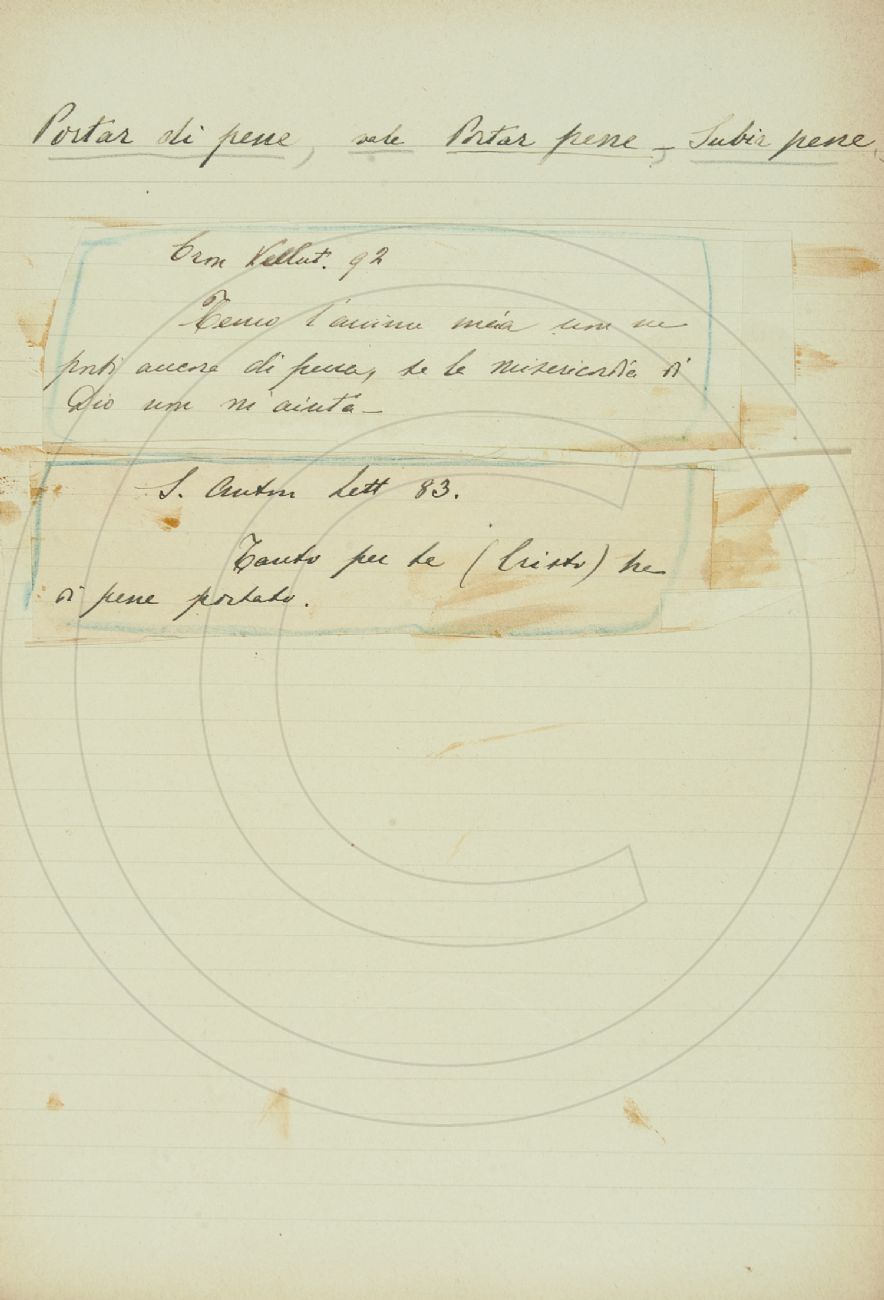 Portar di pene, vale Portar pene, – Subir pene.
Cron Vellut. 92
Temo l'anima mia non ne
porti ancora di pena, se la misericordia di
Dio non m'aiuta –
S. Anton Lett 83.
Tanto per te (Cristo) ha
di pene portato.